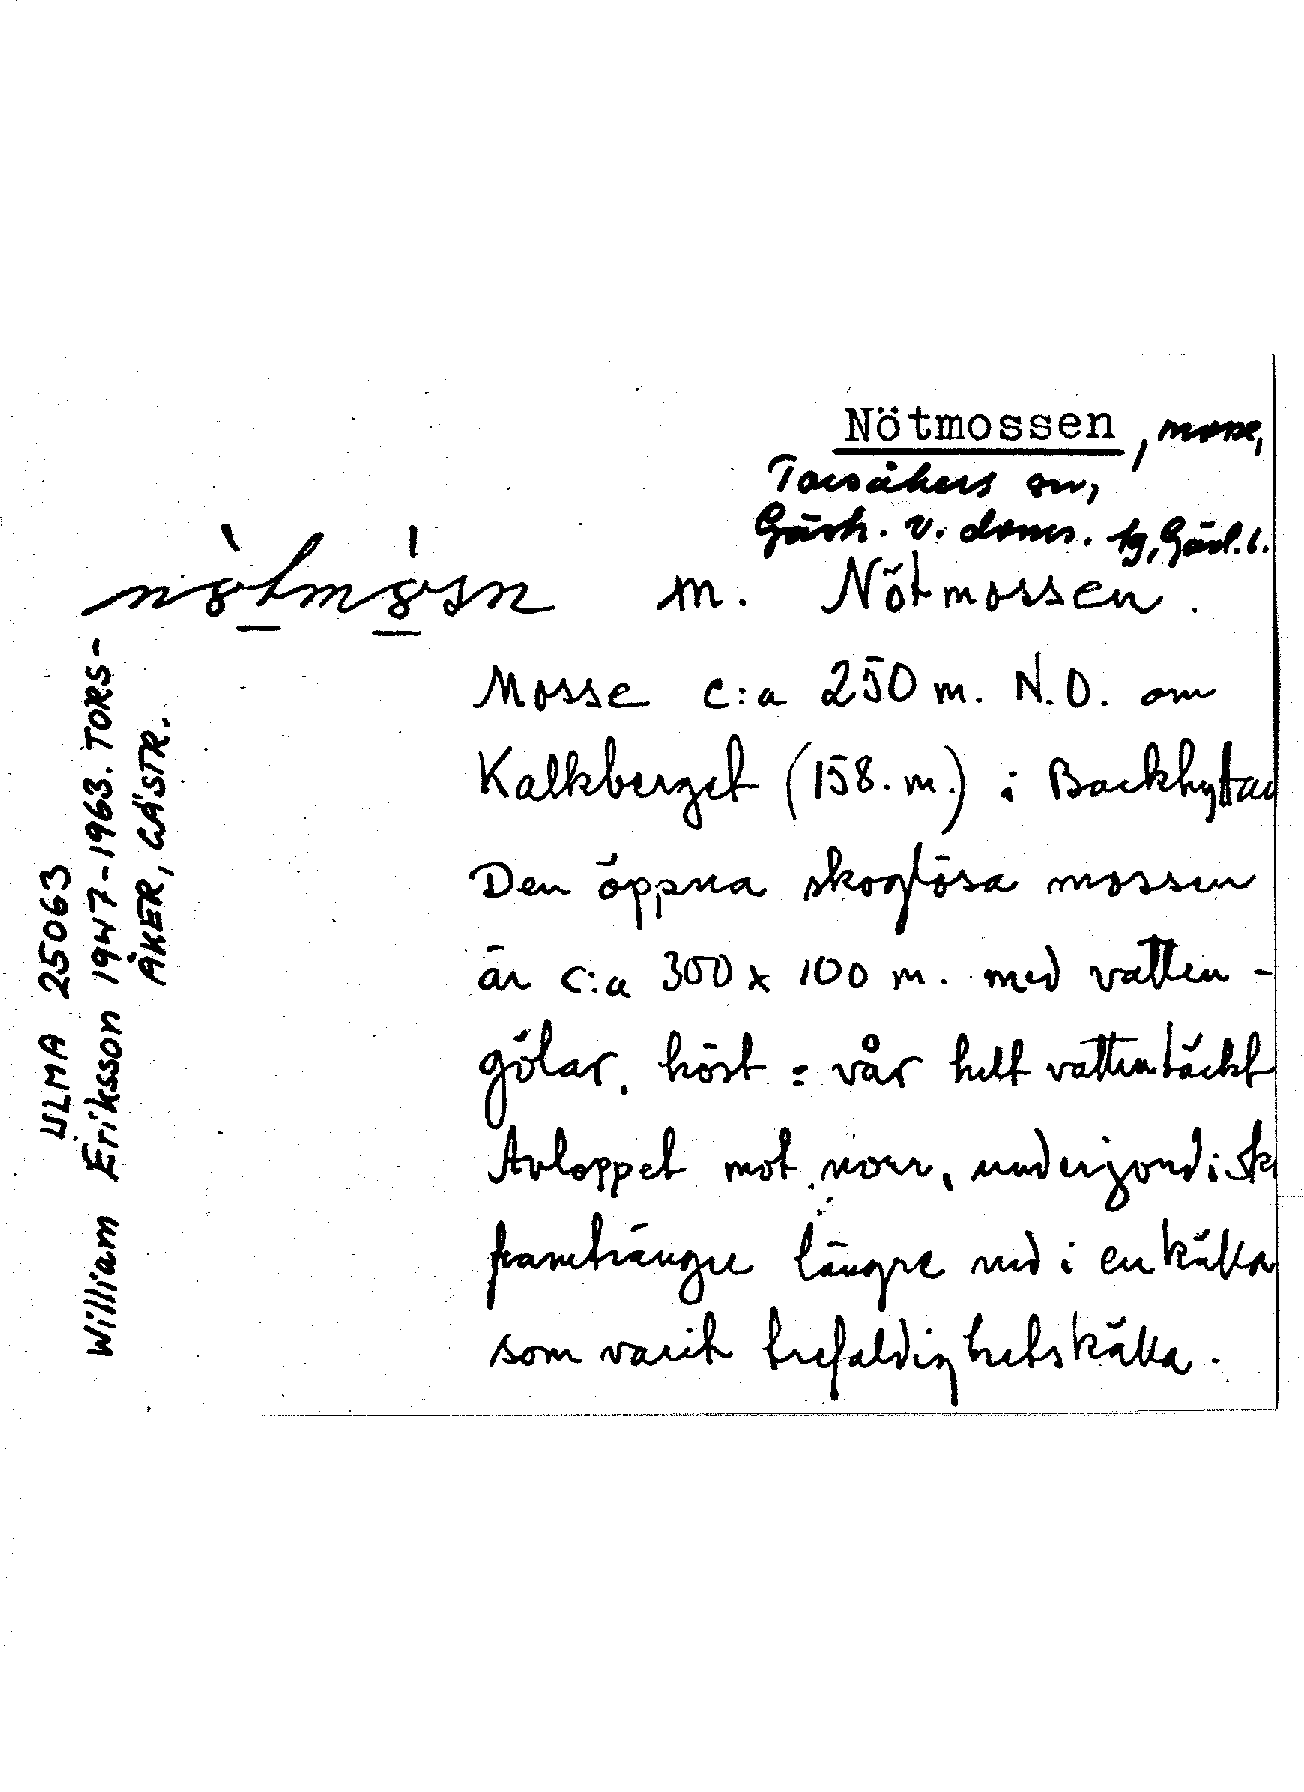 Nötmossen, mosse,
Torsåkers sn,
Gästr. v. doms. tg, Gävl. l.
m. Nötmossen.
Mosse c:a 250 m. N.O. om
Kalkberget (158. m.) i Backhyttan
Den öppna skoglösa mossen
är c:a 300 x 100 m. med vatten-
gölar. höst = vår helt vattentäckt
Avloppet mot norr, underjordisk
framtränger längre ned i en källa
som varit trefaldighetskälla.
ULMA 25063
William Eriksson 1947-1963. TORS-
ÅKER, GÄSTR.